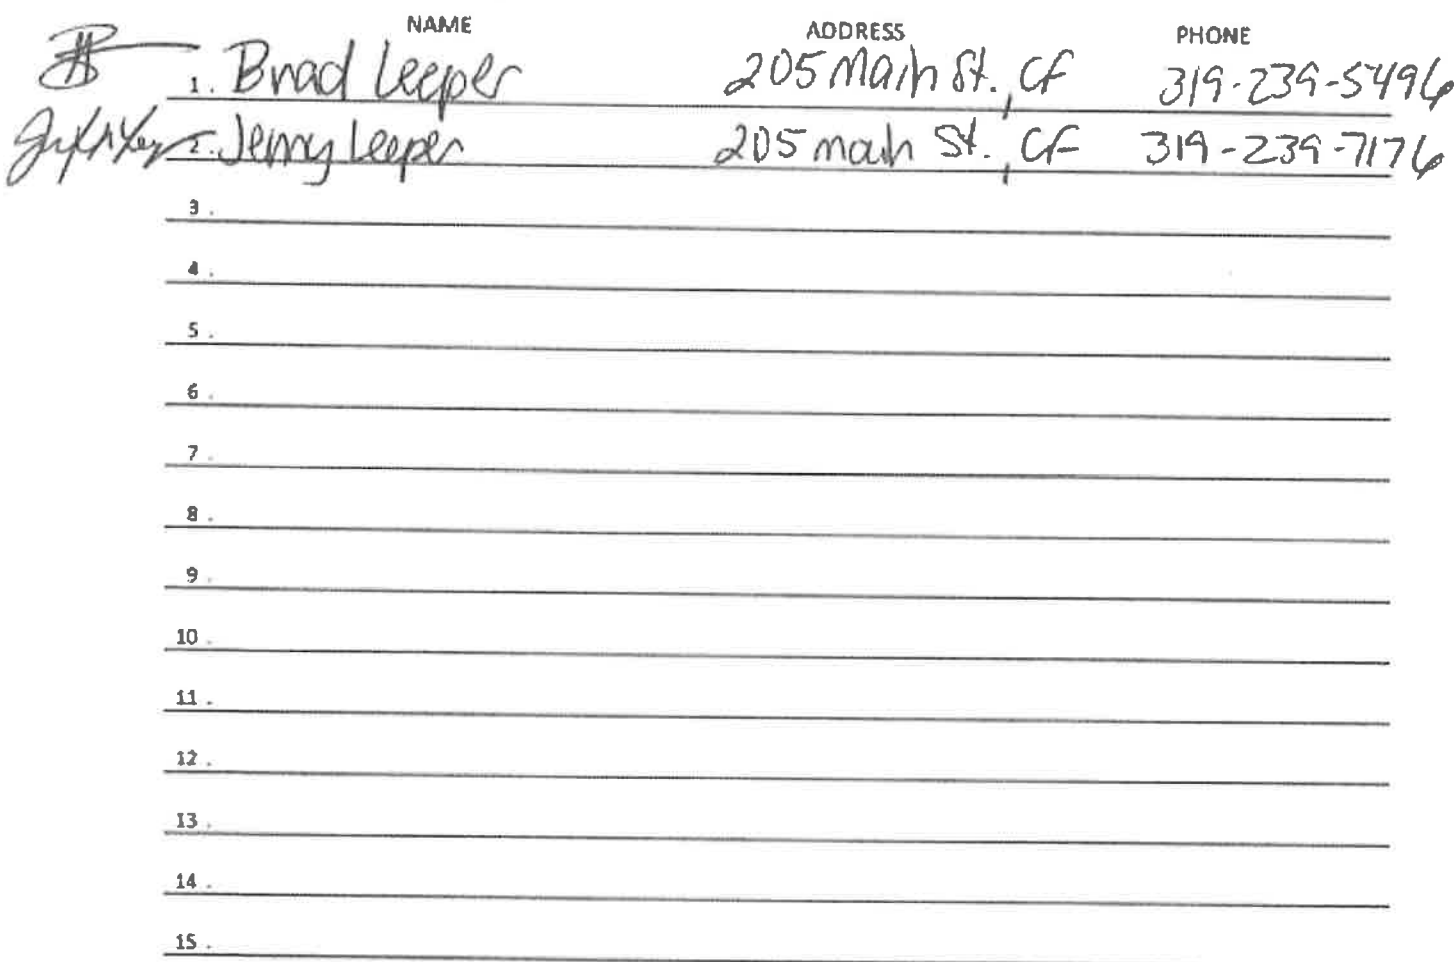 NAME ADDRESS PHONE
1. Brad Leeper 205 Main St., CF 319-239-5496
2. Jenny Leeper 205 main St., CF 319-239-7176
3.
4.
5.
6.
7.
8.
9.
10.
11.
12.
13.
14.
15.